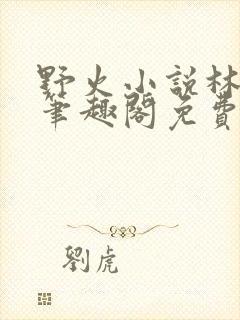 野火小説林
筆趣閣免費
劉虎